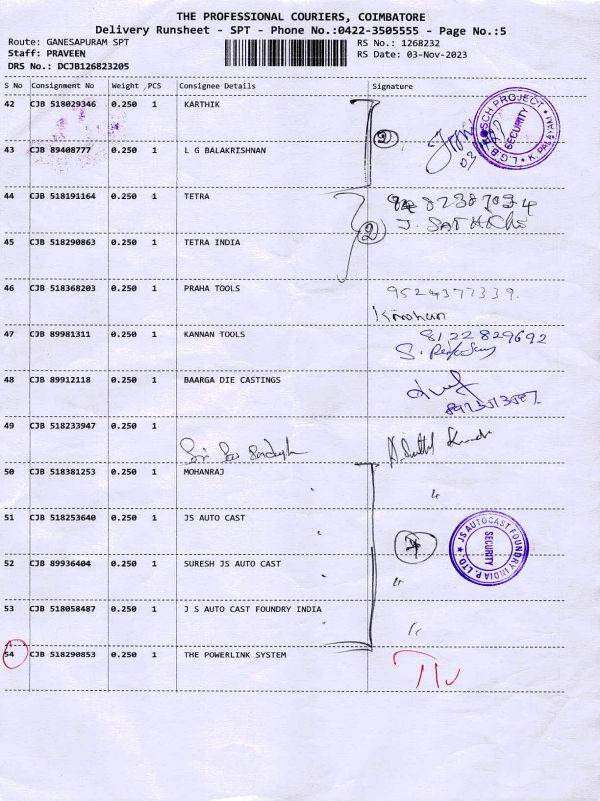 THE PROFESSIONAL COURIERS, COIMBATORE
Delivery Runsheet - SPT - Phone No.:0422-3505555 - Page No.:5
Route: GANESAPURAM SPT
RS No.: 1268232
Staff: PRAVEEN
RS Date: 03-Nov-2023
DRS No.: DCJB126823205
S No Consignment No Weight PCS Consignee Details Signature
42 CJB 518029346 0.250 1 KARTHIK
43 CJB 89408777 0.250 1 L G BALAKRISHNAN
SECURITY
44 CJB 518191164 0.250 1 TETRA
2
45 CJB 518290863 0.250 1 TETRA INDIA
46 CJB 518368203 0.250 1 PRAHA TOOLS 9524377339.
47 CJB 89981311 0.250 1 KANNAN TOOLS 8122829692
48 CJB 89912118 0.250 1 BAARGA DIE CASTINGS
49 CJB 518233947 0.250 1
50 CJB 518381253 0.250 1 MOHANRAJ
51 CJB 518253640 0.250 1 JS AUTO CAST
JS AUTOCAST FOUNDRY INDIA P. LTD.
SECURITY
52 CJB 89936404 0.250 1 SURESH JS AUTO CAST
53 CJB 518058487 0.250 1 J S AUTO CAST FOUNDRY INDIA
54 CJB 518290853 0.250 1 THE POWERLINK SYSTEM